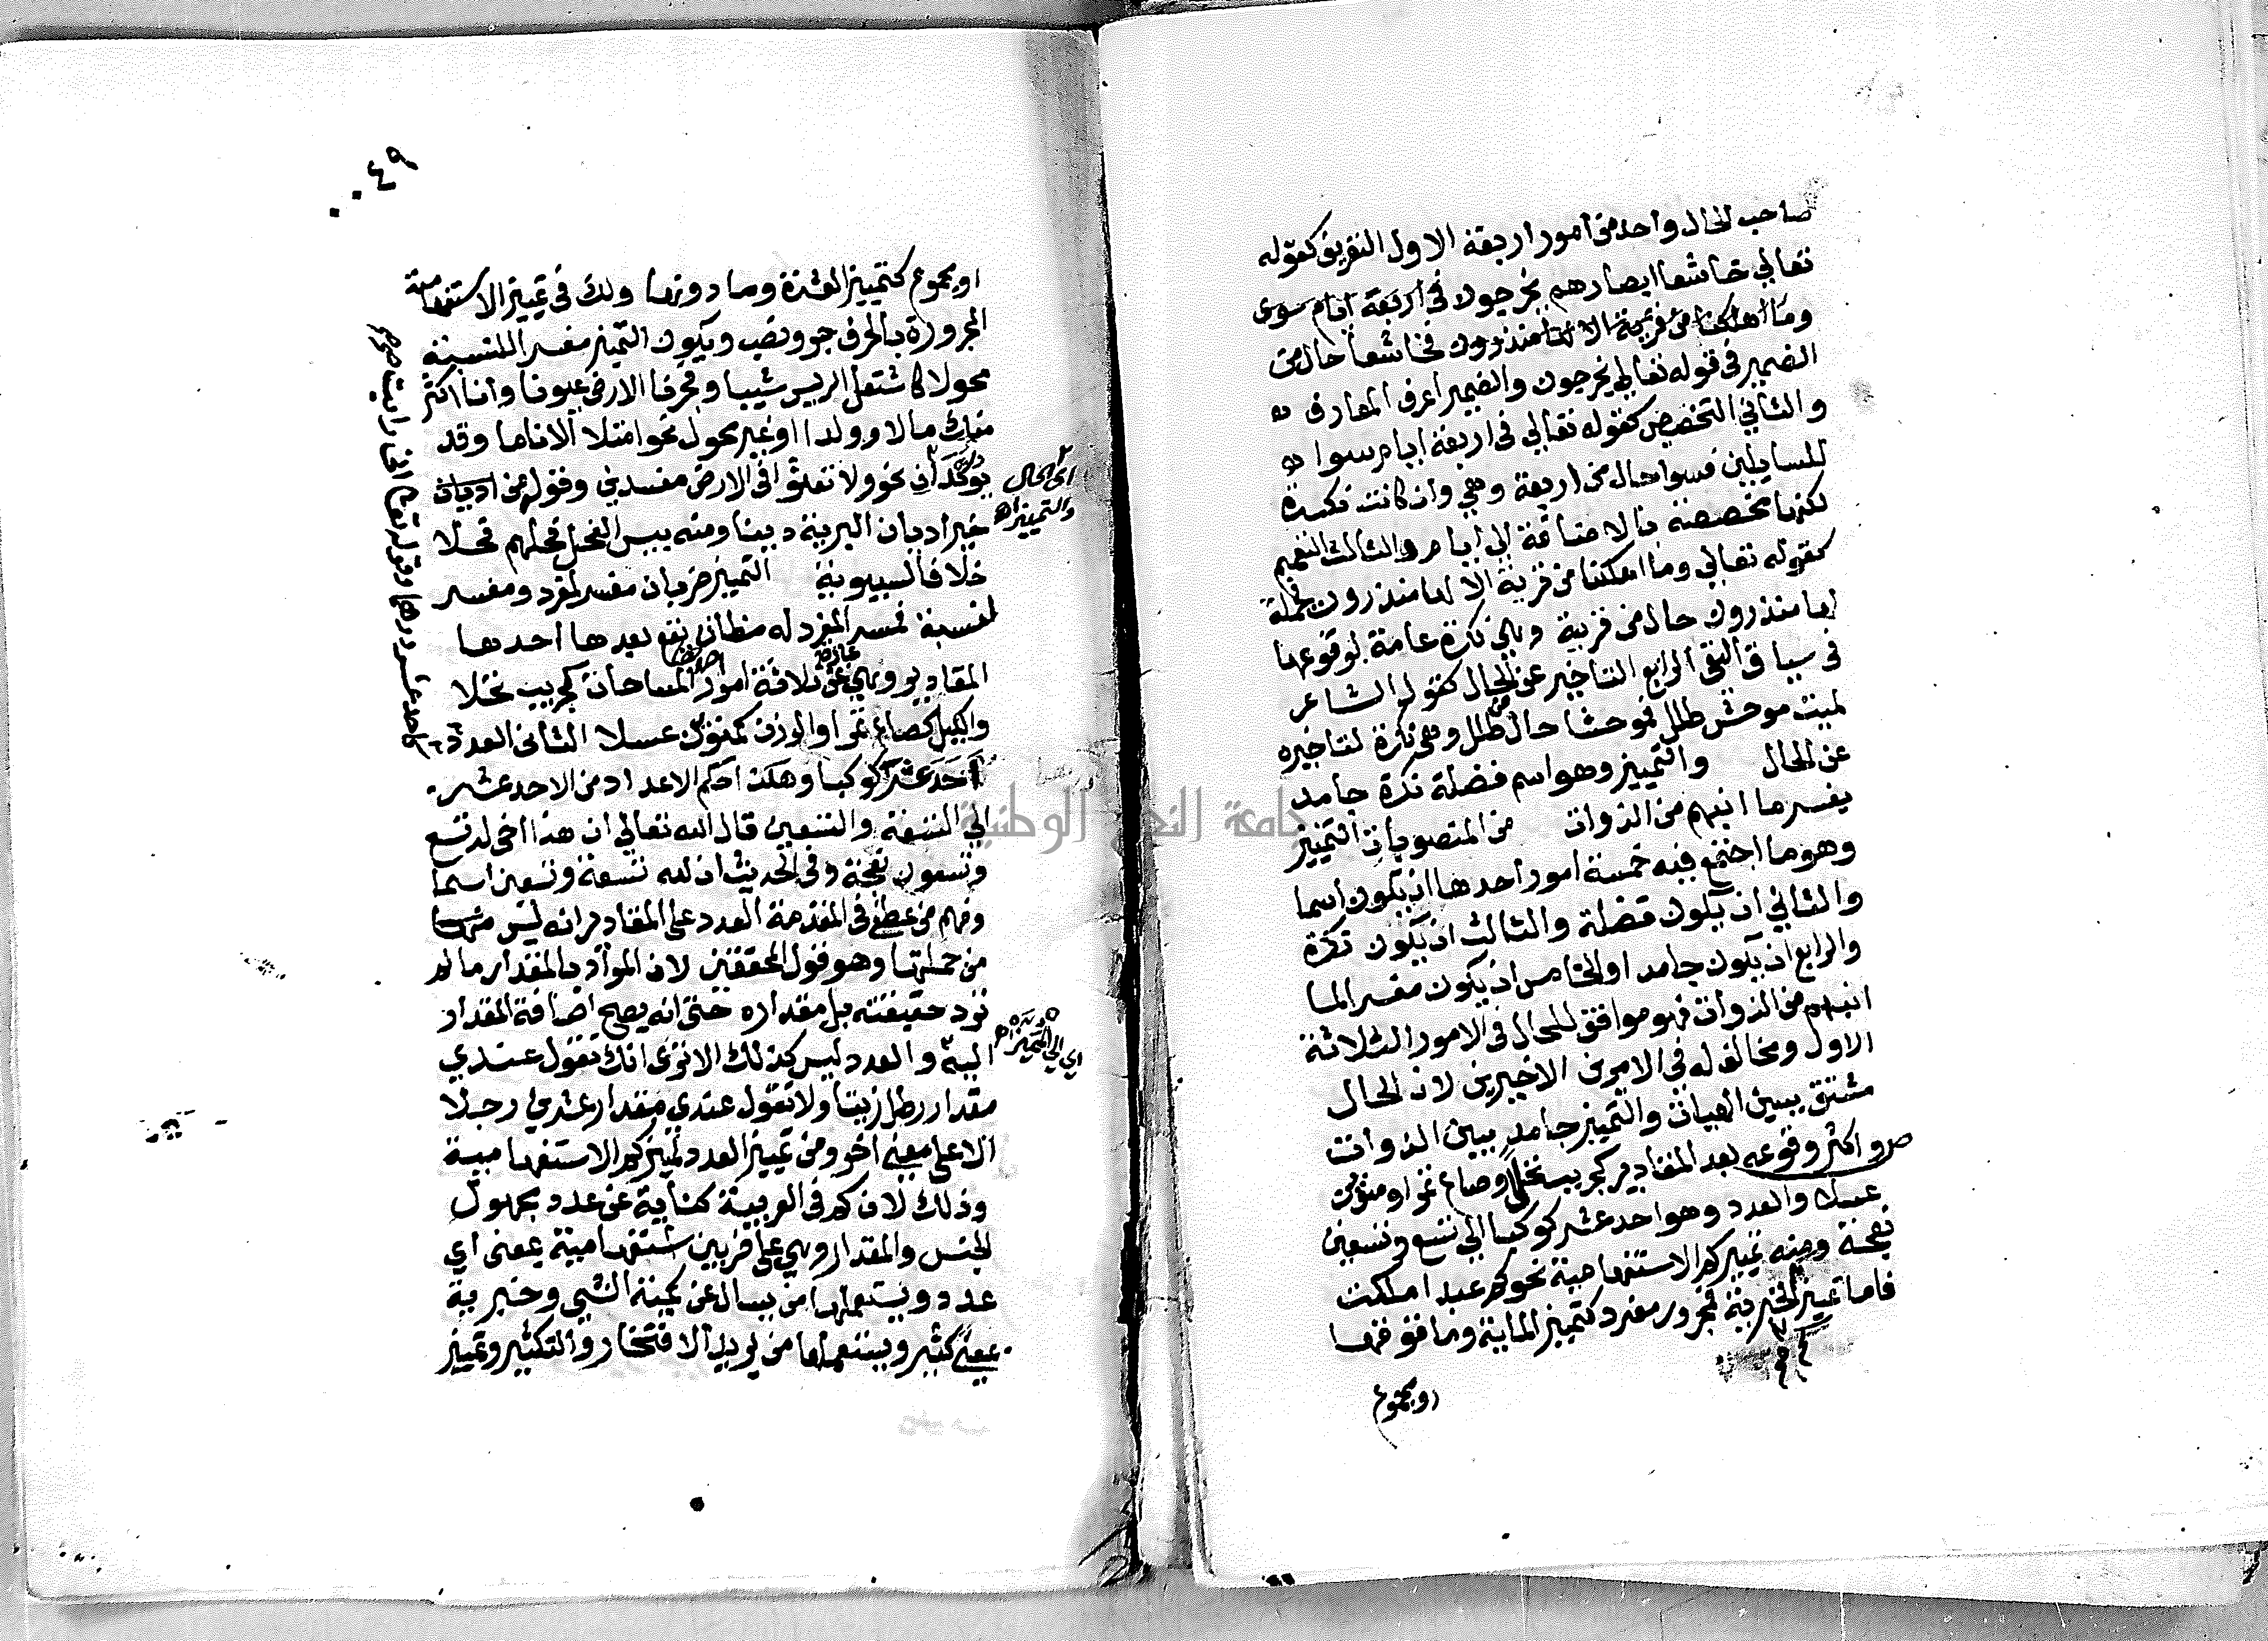 صاحب الحال واحد من امور اربعة الاول التعريف كقوله
تعالي خاشعا ابصارهم يخرجون في اربعة ايام سوى
وما اهلكنا من قرية الا لها منذرون فخاشعا حال من
الضمير في قوله تعالي يخرجون والضمير اعرف المعارف
والثاني التخصيص كقوله تعالي في اربعة ايام سوا
للسايلين فسوا حال من اربعة وهي وان كانت نكرة
لكنها مخصصة بالاضافة الي ايام والثالث التعميم
كقوله تعالي وما اهلكنا من قرية الا لها منذرون فجملة
لها منذرون حال من قرية وهي نكرة عامة لوقوعها
في سياق النفي الرابع التاخير عن الحال كقول الشاعر
لمية موحش طلل فموحشا حال من طلل وهي نكرة لتاخيره
عن الحال والتمييز وهو اسم فضلة نكرة جامد
يفسر ما انبهم من الذوات من المنصوبات التمييز
وهو ما اجتمع فيه خمسة امور احدها ان يكون اسما
والثاني ان يكون فضلة والثالث ان يكون نكرة
والرابع ان يكون جامدا والخامس ان يكون مفسرا لما
انبهم من الذوات فهو موافق للحال في الامور الثلاثة
الاول ومخالف له في الامرين الاخيرين لان الحال
مشتق يبين الهيات والتمييز جامد يبين الذوات
ص واكثر وقوعه بعد المقادير كجريب نخلا وصاع تمرا ومنوين
عسلا والعدد وهو احد عشر كوكبا الي تسع وتسعين
نعجة ومنه تمييز كم الاستفهامية نحو كم عبدا ملكت
فاما تمييز الخبرية فمجرور مفرد كتمييز الماية وما فوقها
او مجموع
٠٤٩
او مجموع كتمييز العشرة وما دونها ولك في تمييز الاستفهامية
المجرورة بالحرف جر ونصب ويكون التمييز مفسرا للنسبة
محولا كاشتعل الرس شيبا وفجرنا الارض عيونا وانا اكثر
منك مالا وولدا او غير محول نحو امتلا الاناما وقد
يوكدان نحو ولا تعثوا في الارض مفسدين وقوله من اديان
اي الحال
والتمييز اه
خير اديان البرية دينا ومنه بيس الفحل فحلهم فحلا
خلافا لسيبويه التمييز ضربان مفسر لمفرد ومفسر
لنسبة فمسر المفرد له مظان يقع بعدها احدها
المقادير وهي عبارة عن ثلاثة امور احدها المساحات كجريب نخلا
والكيل كصاع تمرا والوزن كمنوين عسلا الثاني العدد
كاحد عشر درهما وقوله تعالي اني رايت
احد عشر كوكبا وهكذا حكم الاعداد من الاحد عشر
الي التسعة والتسعين قال الله تعالي ان هذا اخي له تسع
وتسعون نعجة وفي الحديث ان لله تسعة وتسعين اسما
وفهم من عطفي في المقدمة العدد علي المقادير انه ليس
من جملتها وهو قول المحققين لان المراد بالمقدار ما لم
ترد حقيقته بل مقداره حتي انه يصح اضافة المقدار
اليه والعدد ليس كذلك الا تري انك تقول عندي
اي الي التمييز اه
مقدار رطل زيتا ولا تقول عندي مقدار عشرين رجلا
الا علي معني اخر ومن تمييز العدد تمييز كم الاستفهامية
وذلك لان كم في العربية كناية عن عدد مجهول
الجنس والمقدار وهي علي ضربين استفهامية بمعني اي
عدد ويستعملها من يسال عن كمية الشي وخبرية
بمعني كثير ويستعملها من يريد الافتخار والتكثير وتمييز
جامعة النجاح الوطنية